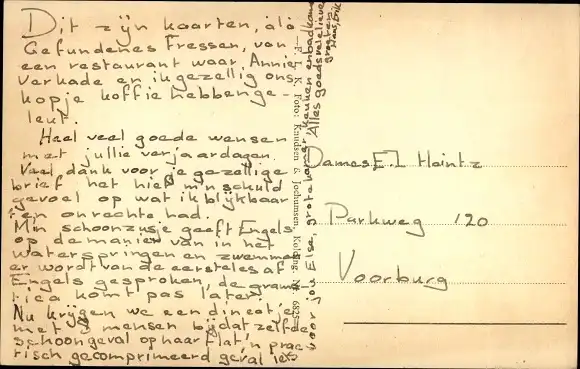 Dit zijn kaarten, als
Gefundenes Fressen, van
een restaurant waar Annie
Verkade en ik gezellig ons
kopje koffie hebben ge-
leut.
Heel veel goede wensen
met jullie verjaardagen.
Veel dank voor je gezellige
brief het hief m'n schuld
gevoel op wat ik blijkbaar
ten onrechte had.
M'n schoonzusje geeft Engels
op de manier van in het
water springen en zwemmen
er wordt van de eerste les af
Engels gesproken, de gramma
tica komt pas later.
Nu krijgen we een dineetje
met 3 mensen bij datzelfde
schoongeval op haar flat 'n prac
tisch gecomprimeerd geval iets
voor jou Else, grote kamer keuken en badkamer
Alles goeds en liefs
groeten
—F. L. K. Foto: Knudsen & Jochumsen, Kolding. Nr. 6825
Dames E I Heintz
Parkweg 120
Voorburg